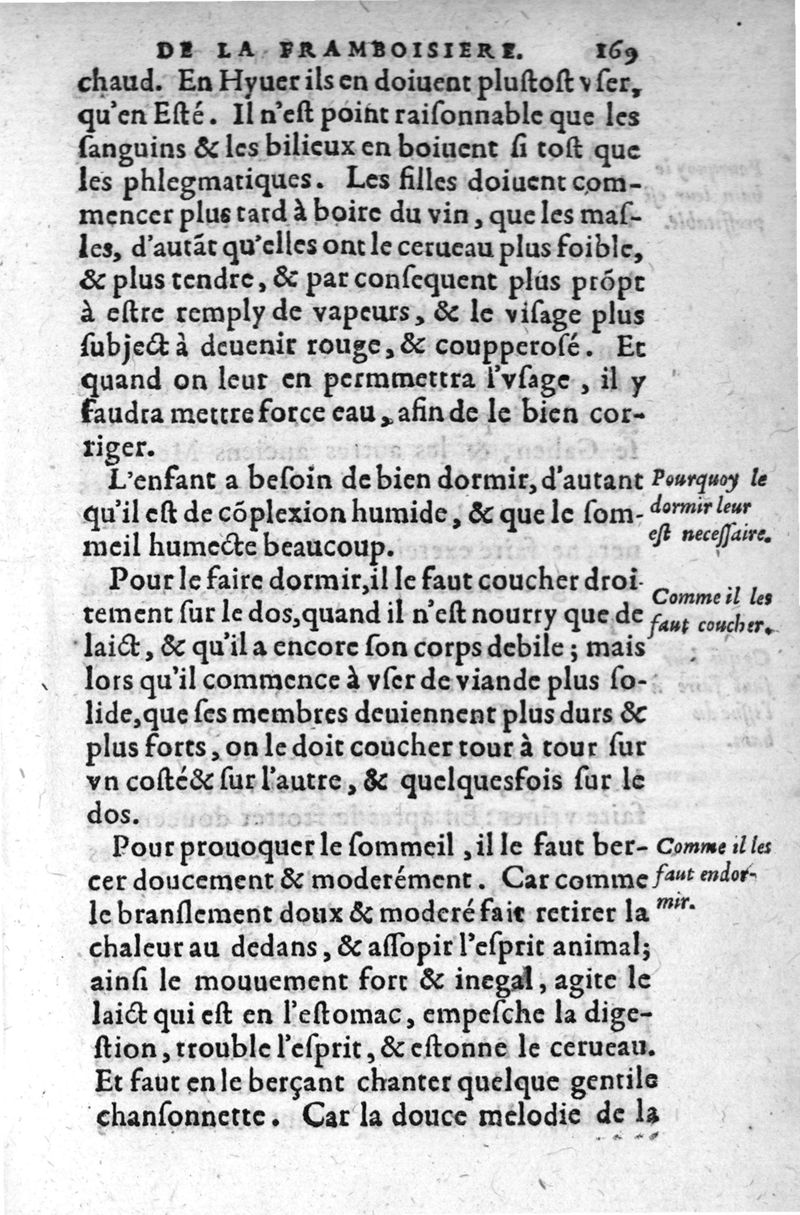 DE LA FRAMBOISIERE. 169
chaud. En Hyuer ils en doiuent pluſtoſt vſer,
qu'en Eſté. Il n'eſt point raiſonnable que les
ſanguins & les bilieux en boiuent ſi toſt que
les phlegmatiques. Les filles doiuent com-
mencer plus tard à boire du vin, que les maſ-
les, d'autãt qu'elles ont le cerueau plus foible,
& plus tendre, & par conſequent plus prõpt
à eſtre remply de vapeurs, & le viſage plus
ſubject à deuenir rouge, & coupperoſé. Et
quand on leur en permmettra l'vſage, il y
faudra mettre force eau, afin de le bien cor-
riger.
L'enfant a beſoin de bien dormir, d'autant
qu'il eſt de cõplexion humide, & que le ſom-
meil humecte beaucoup.
Pourquoy le
dormir leur
eſt neceſſaire.
Pour le faire dormir, il le faut coucher droi-
tement ſur le dos, quand il n'eſt nourry que de
laict, & qu'il a encore ſon corps debile; mais
lors qu'il commence à vſer de viande plus ſo-
lide, que ſes membres deuiennent plus durs &
plus forts, on le doit coucher tour à tour ſur
vn coſté & ſur l'autre, & quelquesfois ſur le
dos.
Comme il les
faut coucher.
Pour prouoquer le ſommeil, il le faut ber-
cer doucement & moderément. Car comme
le branſlement doux & moderé fait retirer la
chaleur au dedans, & aſſopir l'eſprit animal;
ainſi le mouuement fort & inegal, agite le
laict qui eſt en l'eſtomac, empeſche la dige-
ſtion, trouble l'eſprit, & eſtonne le cerueau.
Et faut en le berçant chanter quelque gentile
chanſonnette. Car la douce melodie de la
Comme il les
faut endor-
mir.